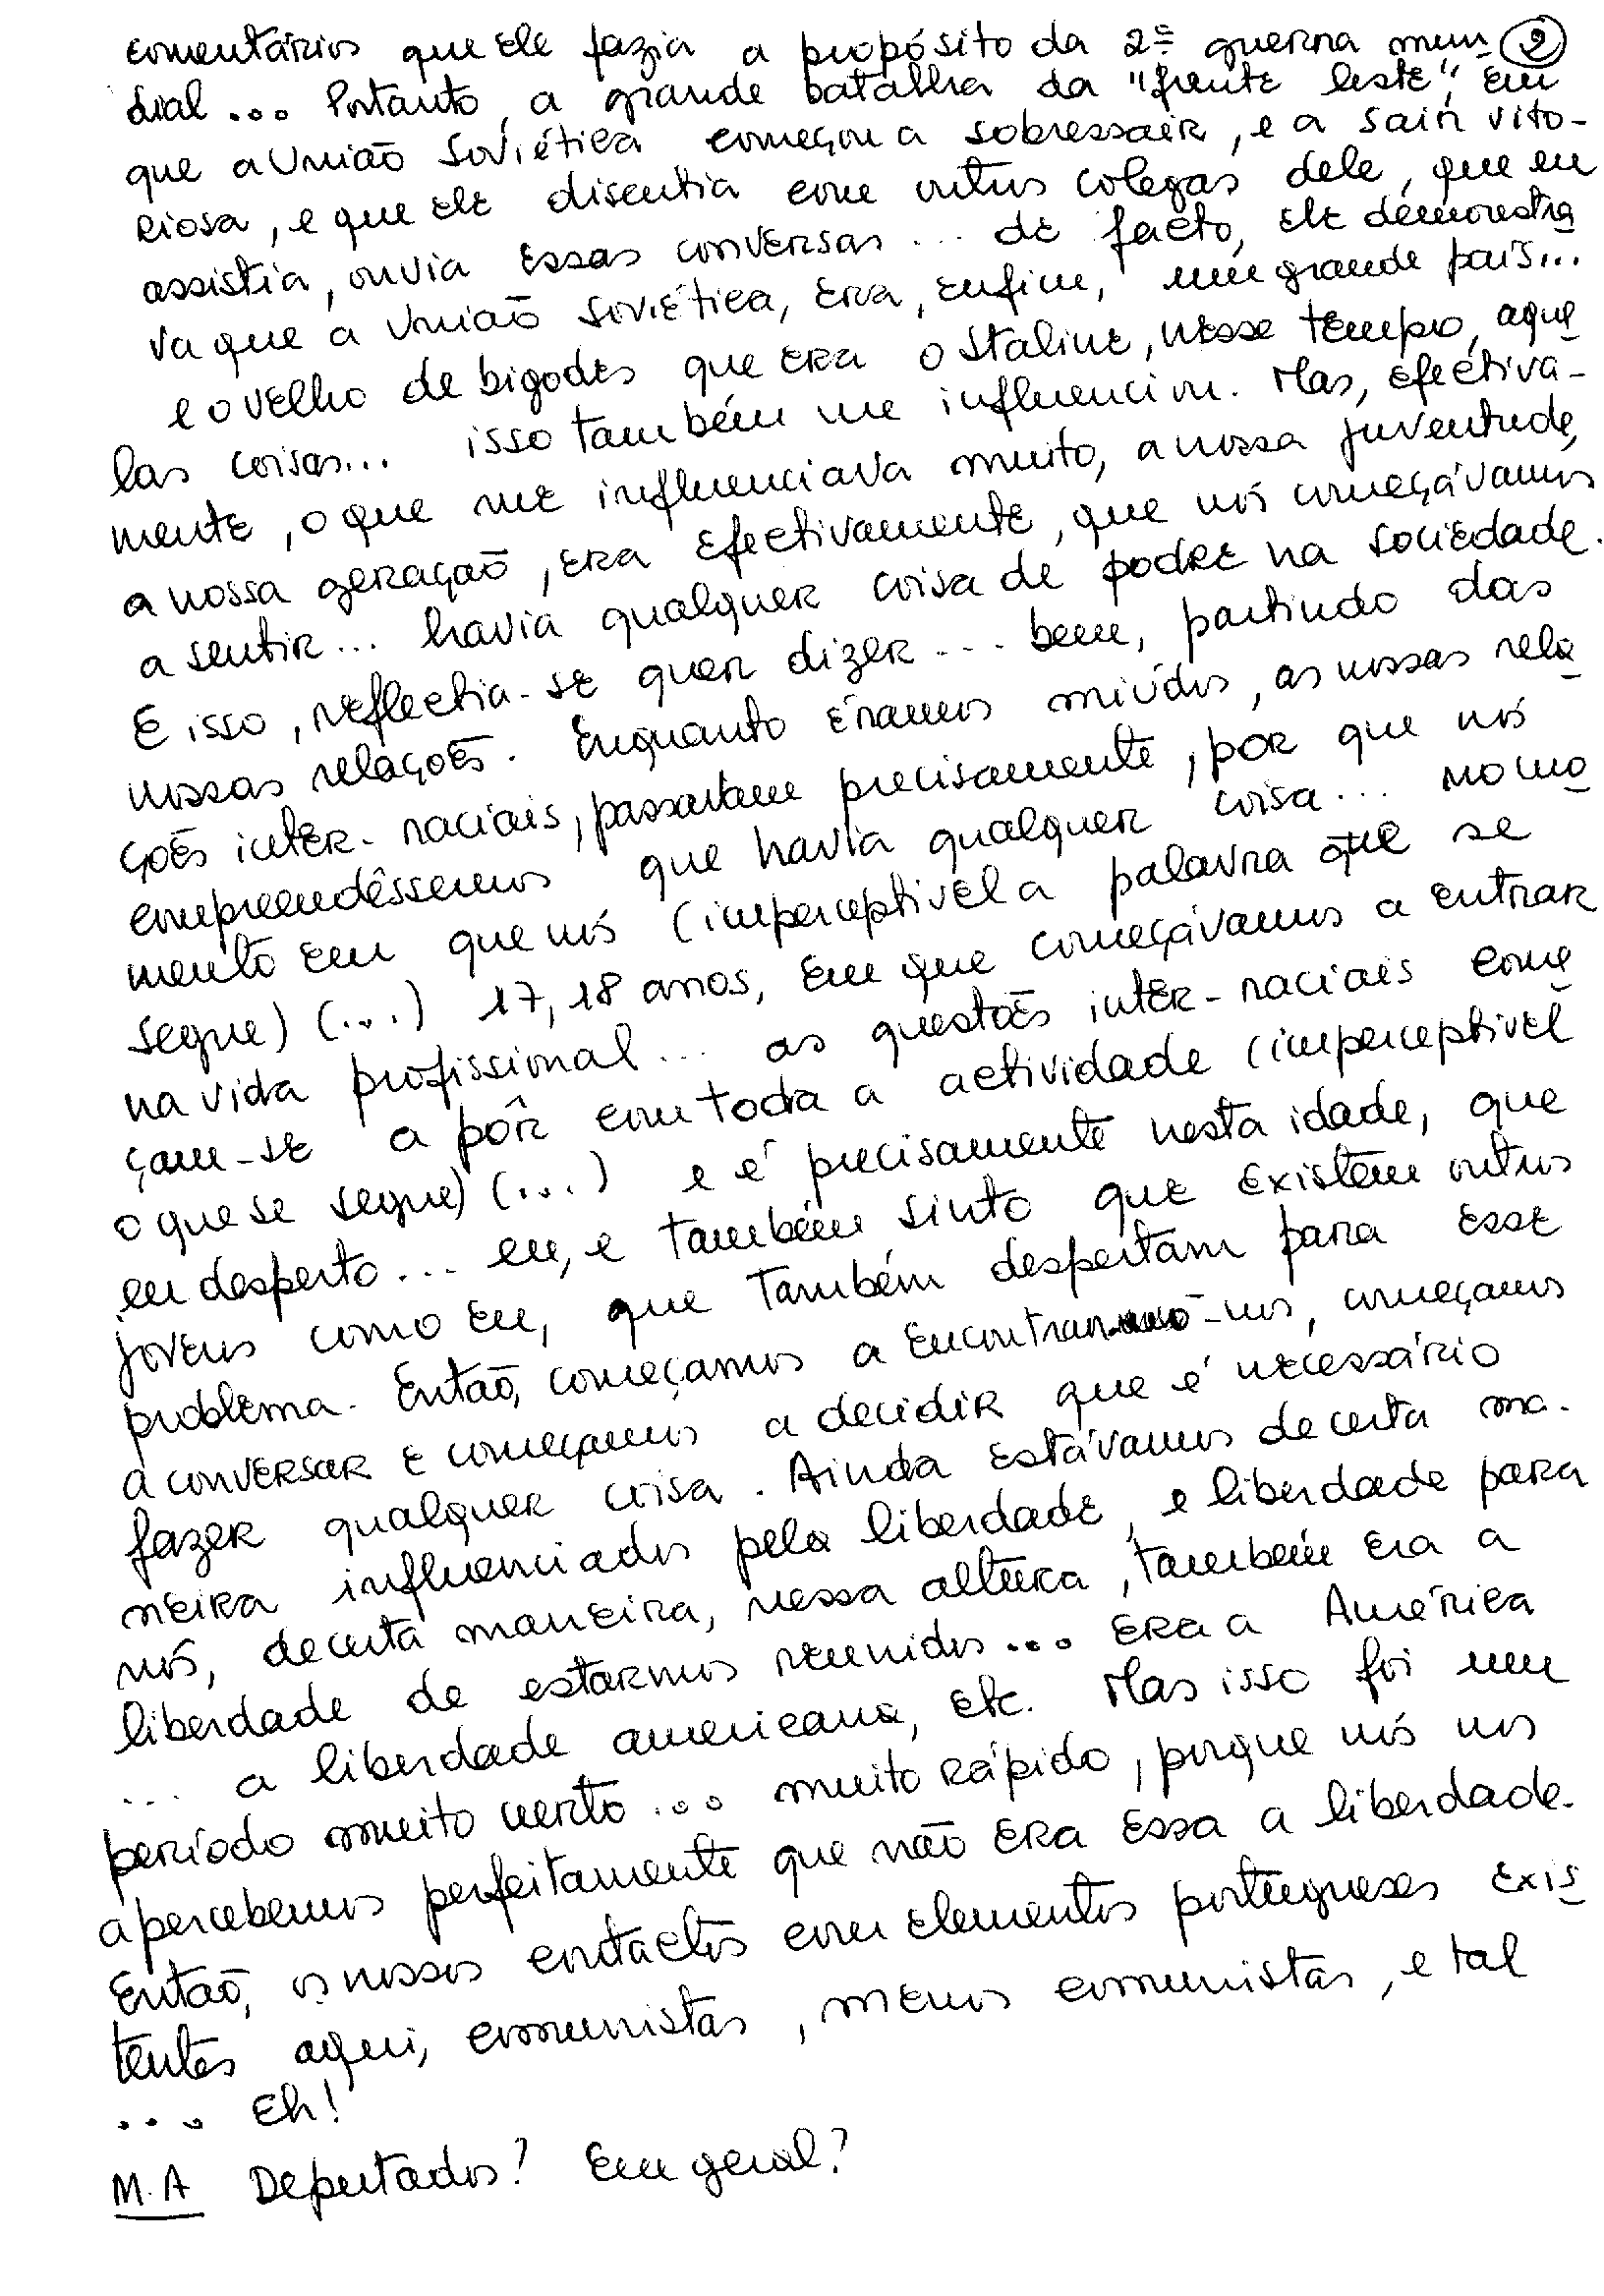 comentários que ele fazia a propósito da 2ª guerra mun- 2
dial... Portanto, a grande batalha da "frente leste", em
que a União Soviética começou a sobressair, e a sair vito-
riosa, e que ele discutia com outros colegas dele, que eu
assistia, ouvia essas conversas... de facto, ele demonstra
va que a União Soviética, era, enfim, um grande país...
e o velho de bigodes que era o Staline, nesse tempo, aque
las coisas... isso também me influenciou. Mas, efectiva-
mente, o que me influenciava muito, a nossa juventude,
a nossa geração, era efectivamente, que nós começávamos
a sentir... havia qualquer coisa de podre na sociedade.
E isso, reflectia-se quer dizer... bem, partindo das
nossas relações. Enquanto éramos miúdos, as nossas rela
ções inter-raciais, passavam precisamente, por que nós
compreendêssemos que havia qualquer coisa... no mo
mento em que nós (imperceptível a palavra que se
segue) (...) 17, 18 anos, em que começávamos a entrar
na vida profissional... as questões inter-raciais come
çam-se a pôr com toda a actividade (imperceptível
o que se segue) (...) e é precisamente nesta idade, que
eu desperto... eu, e também sinto que existem outros
jovens como eu, que também despertam para esse
problema. Então, começamos a encontrar-nos, começamos
a conversar e começamos a decidir que é necessário
fazer qualquer coisa. Ainda estávamos de certa ma-
neira influenciados pela liberdade, e liberdade para
nós, de certa maneira, nessa altura, também era a
liberdade de estarmos reunidos... era a América
... a liberdade americana, etc. Mas isso foi um
período muito curto... muito rápido, porque nós nos
apercebemos perfeitamente que não era essa a liberdade.
Então, os nossos contactos com elementos portugueses exis
tentes aqui, comunistas, menos comunistas, e tal
... Eh!
M.A Deputados? Em geral?